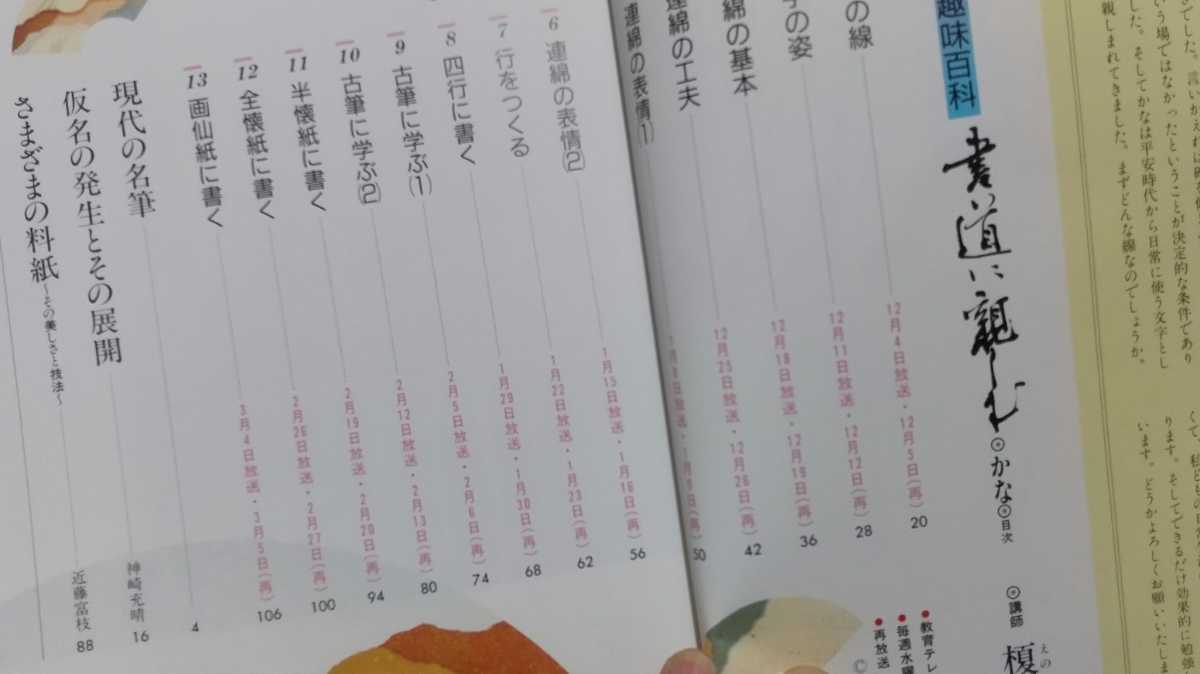 てした。言いかえれば
いう場ではなかったということが決定的な条件であり
した。そしてかなは平安時代から日常に使う文字とし
親しまれてきました。まずどんな線なのでしょうか。
ります。そしてできるだけ効果的に勉強
います。どうかよろしくお願いいたしま
趣味百科
書道に親しむ
◎かな◎目次
◎講師
榎
えの
●教育テレ
●毎週水曜
●再放送
の線 12月4日放送・12月5日(再) 20
の姿 12月11日放送・12月12日(再) 28
綿の基本 12月18日放送・12月19日(再) 36
連綿の工夫 12月25日放送・12月26日(再) 42
連綿の表情(1) 1月8日放送・1月9日(再) 50
6 連綿の表情(2) 1月15日放送・1月16日(再) 56
7 行をつくる 1月22日放送・1月23日(再) 62
8 四行に書く 1月29日放送・1月30日(再) 68
9 古筆に学ぶ(1) 2月5日放送・2月6日(再) 74
10 古筆に学ぶ(2) 2月12日放送・2月13日(再) 80
11 半懐紙に書く 2月19日放送・2月20日(再) 94
12 全懐紙に書く 2月26日放送・2月27日(再) 100
13 画仙紙に書く 3月4日放送・3月5日(再) 106
現代の名筆 4
仮名の発生とその展開 神崎充晴 16
さまざまの料紙〜その美しさと技法〜 近藤富枝 88